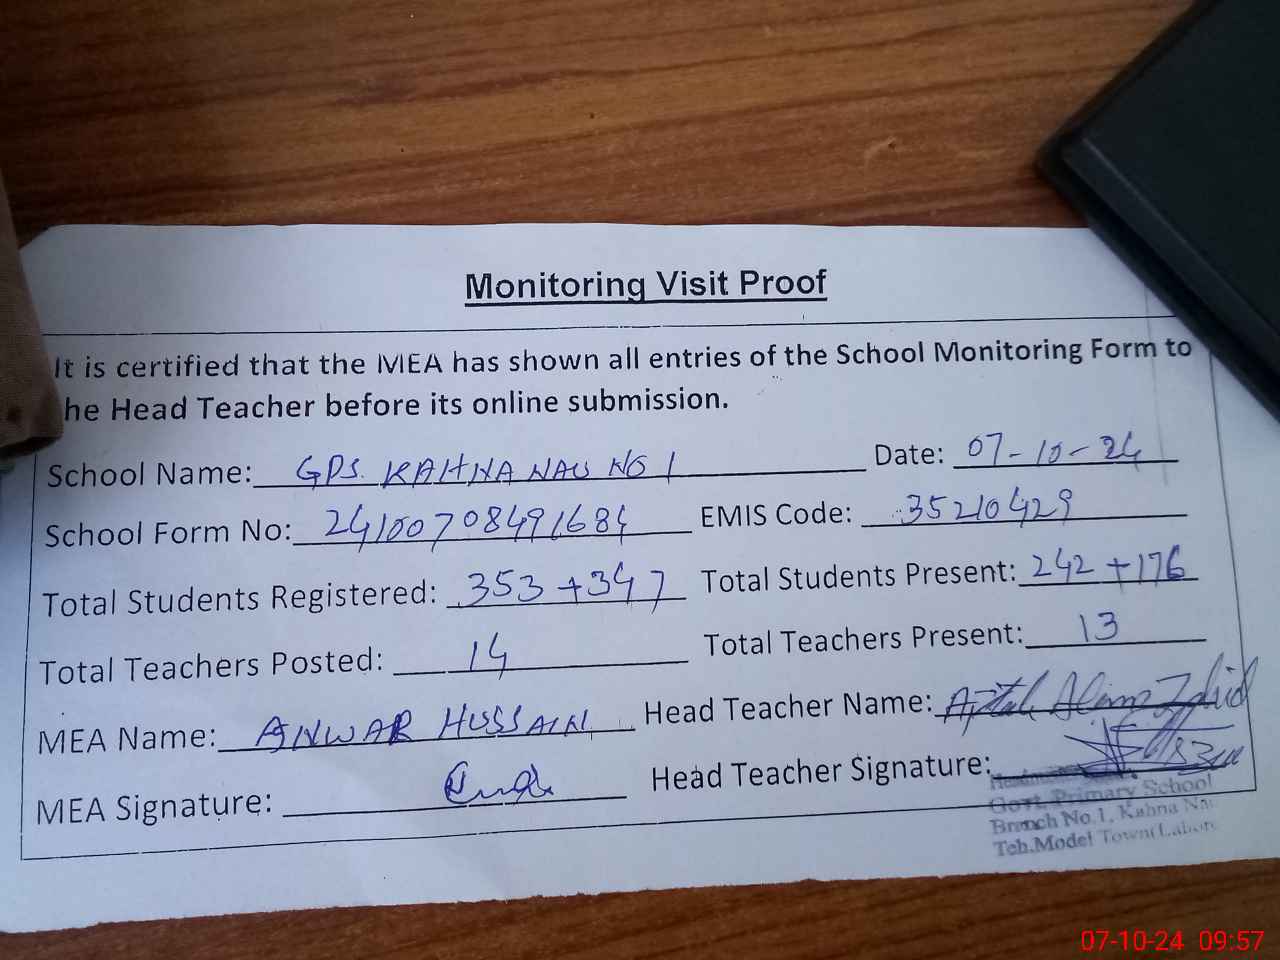 Monitoring Visit Proof
It is certified that the MEA has shown all entries of the School Monitoring Form to
he Head Teacher before its online submission.
School Name: GPS. KAHNA NAU NO 1 Date: 07-10-24
School Form No: 24100708491684 EMIS Code: 35210429
Total Students Registered: 353+347 Total Students Present: 242+176
Total Teachers Posted: 14 Total Teachers Present: 13
MEA Name: ANWAR HUSSAIN Head Teacher Name:
MEA Signature: Head Teacher Signature:
Govt. Primary School
Branch No.1, Kahna Nau
Teh.Model Town(Lahore
07-10-24 09:57